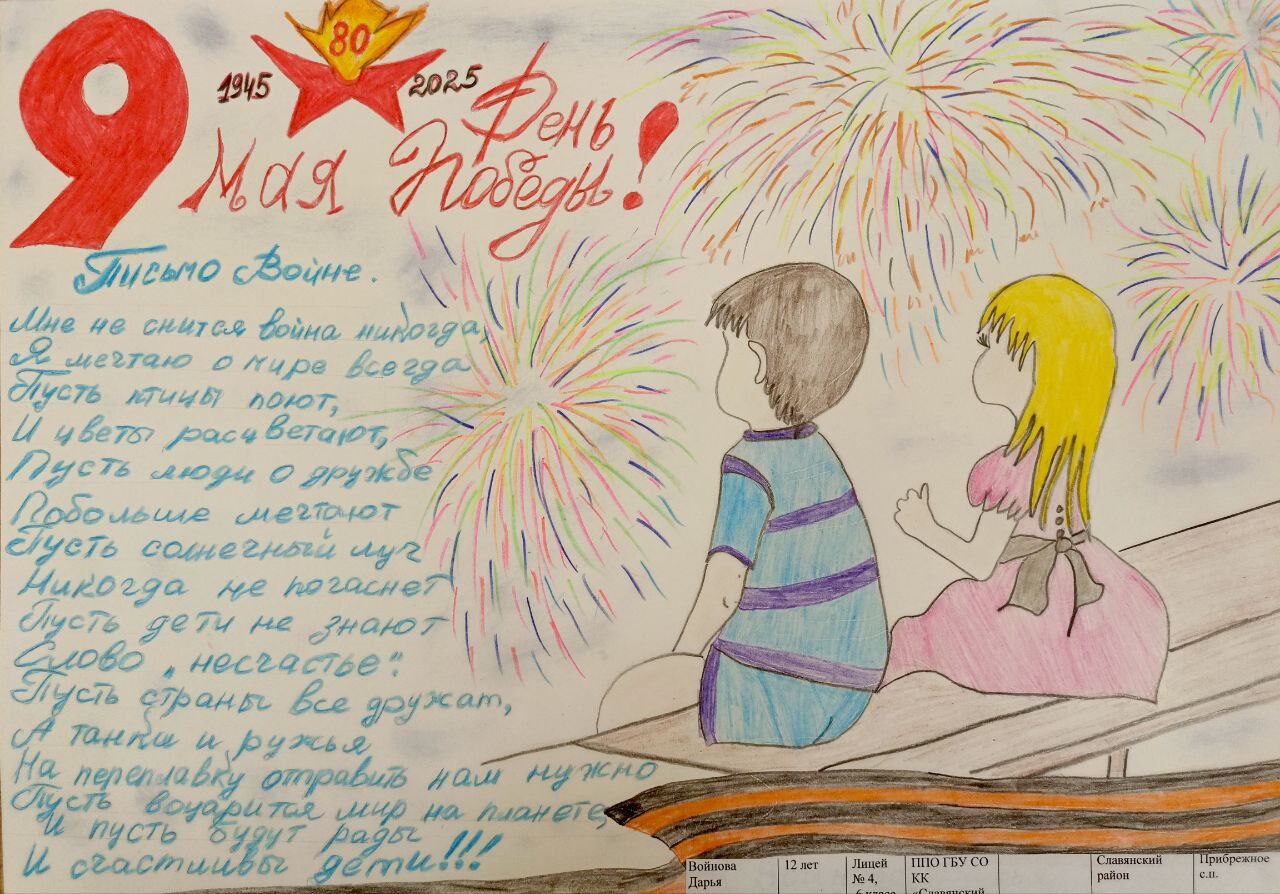 9
80
1945 2025
Мая День
Победы!
Письмо Войне.
Мне не снится война никогда,
Я мечтаю о мире всегда
Пусть птицы поют,
И цветы расцветают,
Пусть люди о дружбе
Побольше мечтают
Пусть солнечный луч
Никогда не погаснет
Пусть дети не знают
Слово „несчастье“.
Пусть страны все дружат,
А танки и ружья
На переплавку отправить нам нужно
Пусть воцарится мир на планете,
И пусть будут рады
И счастливы дети!!!
Войнова
Дарья
12 лет
Лицей
№ 4,
6 класс
ППО ГБУ СО
КК
«Славянский
Славянский
район
Прибрежное
с.п.